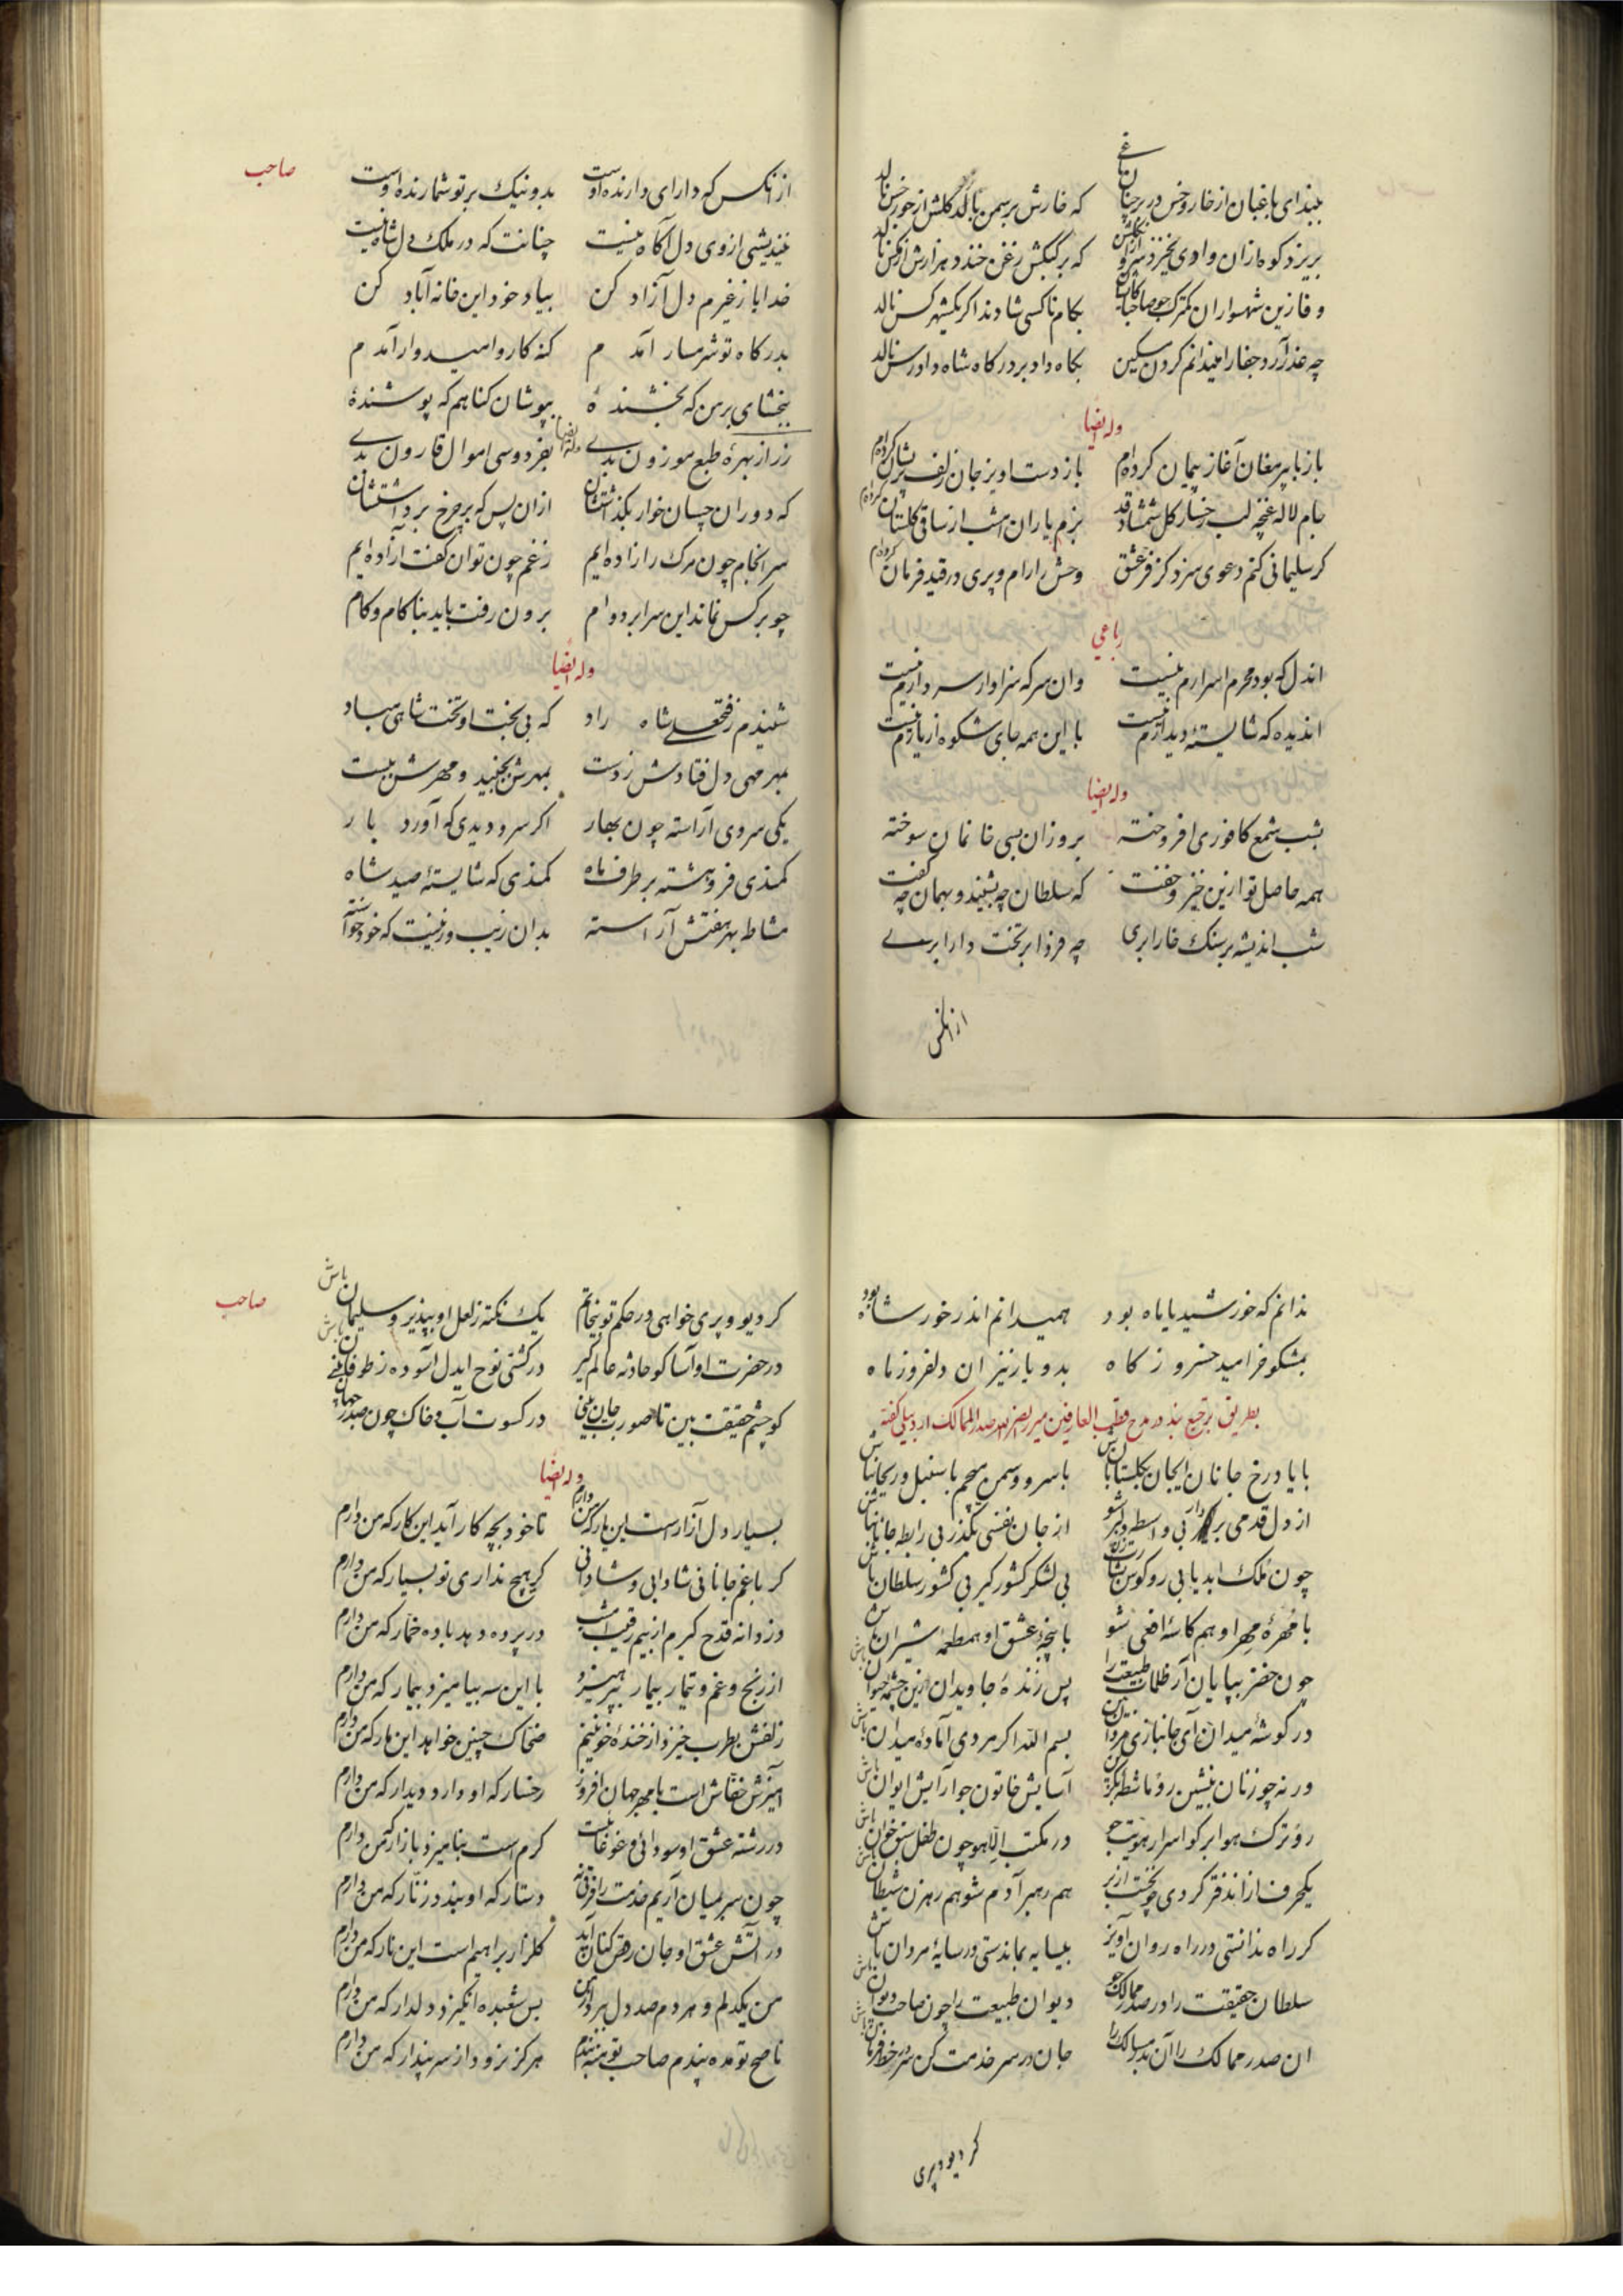 ببند ای باغبان از خار و خس در بر چنان باغی که خارش بر سمن بالد گلش از جور خس نالد
بریزد کوه ازان وادی بخیزد سرو ازان گلشن که بر کبکش زغن خندد هزارش از مگس نالد
وفا زین شهسواران کمترک جو صاحبا کانجا بکام ناکسی شادند اگر یکشهر کس نالد
چه عذر آرد جفا را میندانم کردن مسکین بگاه داد بر درگاه شاه دادرس نالد
وله ایضا
باز با پیر مغان آغاز پیمان کرده‌ام باز دست اویز جان زلف پریشان کرده‌ام
جام لاله غنچه لب رخسار گل شمشاد قد بزم یاران امشب از ساقی گلستان کرده‌ام
گر سلیمانی کنم دعوی سزد کز فر عشق وحش را رام و پری در قید فرمان کرده‌ام
رباعی
اندل که بود محرم اسرارم نیست وان سر که سزاوار سر دارم نیست
اندیده که شایستهٔ دیدارم نیست با این همه جای شکوه از یارم نیست
وله ایضا
بشب شمع کافوری افروخته بروزان بسی خانمان سوخته
همه حاصل تو ازین خیز و خفت که سلطان چه بشنید و بهمان چه گفت
شب اندیشه بر سنگ خارا بری چه فردا بر تخت دارا بری
ازانکس
صاحب
از انکس که دارای دارنده اوست بد و نیک بر تو شمارنده اوست
نیندیشی ازوی دل آگاه نیست چنانت که در ملک دل شاه نیست
خدایا ز غیرم دل آزاد کن بیاد خود این خانه آباد کن
بدرگاه تو شرمسار آمدم گنه کار و امیدوار آمدم
ببخشای بر من که بخشندهٔ بپوشان گناهم که پوشندهٔ
وله ایضا
زر از بهرهٔ طبع موزون بدی بفردوسی اموال قارون بدی
که دوران چسان خوار بگذاشتشان ازان پس که بر چرخ برداشتشان
سرانجام چون مرگ را زاده‌ایم ز غم چون توان گفت ازاده‌ایم
چو بر کس نماند این سرا بر دوام برون رفت باید بناکام و کام
وله ایضا
شنیدم ز فتحعلی شاه راد که بی بخت او تخت شاهی مباد
بمهر مهی دل فتادش ز دست بمهرش بجنبید و مهرش ببست
یکی سروی آراسته چون بهار اگر سرو دیدی که آورد بار
کمندی فروهشته بر طرف ماه کمندی که شایستهٔ صید شاه
مشاطه بهر هفتش آراسته بدان زیب و زینت که خود خواسته
ندانم که خورشید یا ماه بود همیدانم اندر خور شاه بود
بمشکو خرامید خسرو ز گاه بدو باز نیز ان دلفروز ماه
بطریق ترجیع بند در مدح قطب العارفین میر نصر الله صدر الممالک اردبیلی گفته
با یاد رخ جانان ایجان بگلستان باش با سرو و سمن همچم با سنبل و ریحان باش
از دل قدمی بردار بی واسطه دلبر شو از جان نفسی بگذر بی رابطه جانان باش
چون ملک ابد یابی رو کوس بشارت زن بی لشکر کشور گیر بی کشور سلطان باش
با مهرهٔ مهر او هم کاسهٔ افعی شو با پنجهٔ عشق او همطعمهٔ شیران باش
چون خضر بپایان آر ظلمات طبیعت را پس زندهٔ جاویدان زین چشمهٔ حیوان باش
در گوشهٔ میدان آی جانبازی مردان بین بسم الله اگر مردی آمادهٔ میدان باش
ورنه چو زنان بنشین رو ماشطه بگزین آسایش خاتون جو آرایش ایوان باش
رو ترک هوا برگو اسرار هویت جو در مکتب اللهو چون طفل سبق خوان باش
یکحرف ازاندفتر کردی چو نخست از بر هم رهبر آدم شو هم رهزن شیطان باش
گر راه ندانستی در راه روان آویز بیسایه بماندستی در سایهٔ مردان باش
سلطان حقیقت را در صدر ممالک جو دیوان طبیعت را چون صاحب دیوان باش
ان صدر ممالک را آن بدر مسالک را جان در سر خدمت کن سر در خط فرمان باش
گر دیو و پری
صاحب
گر دیو و پری خواهی در حکم تو بی خاتم یک نکته ز لعل او بپذیر و سلیمان باش
در حضرت او آسا گو حادثه عالم گیر در کشتی نوح ایدل آسوده ز طوفان باش
کو چشم حقیقت بین تا صورت جان بینی در کسوت آب و خاک چون صدر جهان
وله ایضا
بسیار دل آزار است این یار که من دارم تا خود بچه کار آید این کار که من دارم
گر با غم جانانی شادابی و شادانی گر هیچ نداری تو بسیار که من دارم
دزدانه قدح گیرم از بیم رقیب امشب در پرده دهد باده خمار که من دارم
از رنج و غم و تیمار بیمار بپرهیزد با این سه بیامیزد بیمار که من دارم
زلفش بطرب خیزد از خندهٔ خونینم ضحاک چنین خواهد این مار که من دارم
آمیزش خفاش است با مهر جهان افروز رخسار که او دارد دیدار که من دارم
در رشته عشق او سودائی و غوغائیست گرم است بنامیزد بازار که من دارم
چون سر بمیان آریم خدمت را فرقی نه دستار که او بندد زنار که من دارم
در آتش عشق او جان رقص کنان آید گلزار براهیم است این نار که من دارم
من یکدلم و هر دم صد دل برد از من بس شعبده انگیزد دلدار که من دارم
ناصح تو مده پندم صاحب تو منه بندم هرگز نرود از سر پندار که من دارم